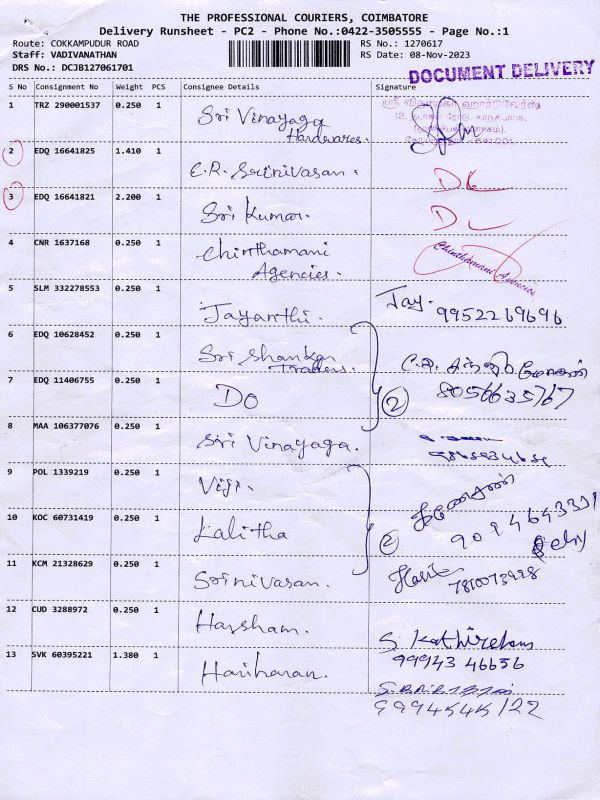 THE PROFESSIONAL COURIERS, COIMBATORE
Delivery Runsheet - PC2 - Phone No.:0422-3505555 - Page No.:1
Route: COKKAMPUDUR ROAD
Staff: VADIVANATHAN
DRS No.: DCJB127061701
RS No.: 1270617
RS Date: 08-Nov-2023
DOCUMENT DELIVERY
S No Consignment No Weight PCS Consignee Details Signature
1 TRZ 290001537 0.250 1 Sri Vinayaga Hardwares.
ஸ்ரீ விநாயகா ஹார்டுவேர்ஸ்
2 EDQ 16641825 1.410 1 C.R. Srinivasan.
3 EDQ 16641821 2.200 1 Sri Kumar.
4 CNR 1637168 0.250 1 Chinthamani Agencies. Chinthamani Agencies
5 SLM 332278553 0.250 1 Jayanthi. Jay. 9952269696
6 EDQ 10628452 0.250 1 Sri Shankar Traders.
7 EDQ 11406755 0.250 1 DO 2 8056635767
8 MAA 106377076 0.250 1 Sri Vinayaga.
9 POL 1339219 0.250 1 Viji. கணேசன்
10 KOC 60731419 0.250 1 Lalitha 2
11 KCM 21328629 0.250 1 Srinivasan.
12 CUD 3288972 0.250 1 Harsham. S. Kathiresan
99943 46656
13 SVK 60395221 1.380 1 Hariharan.
9994545122